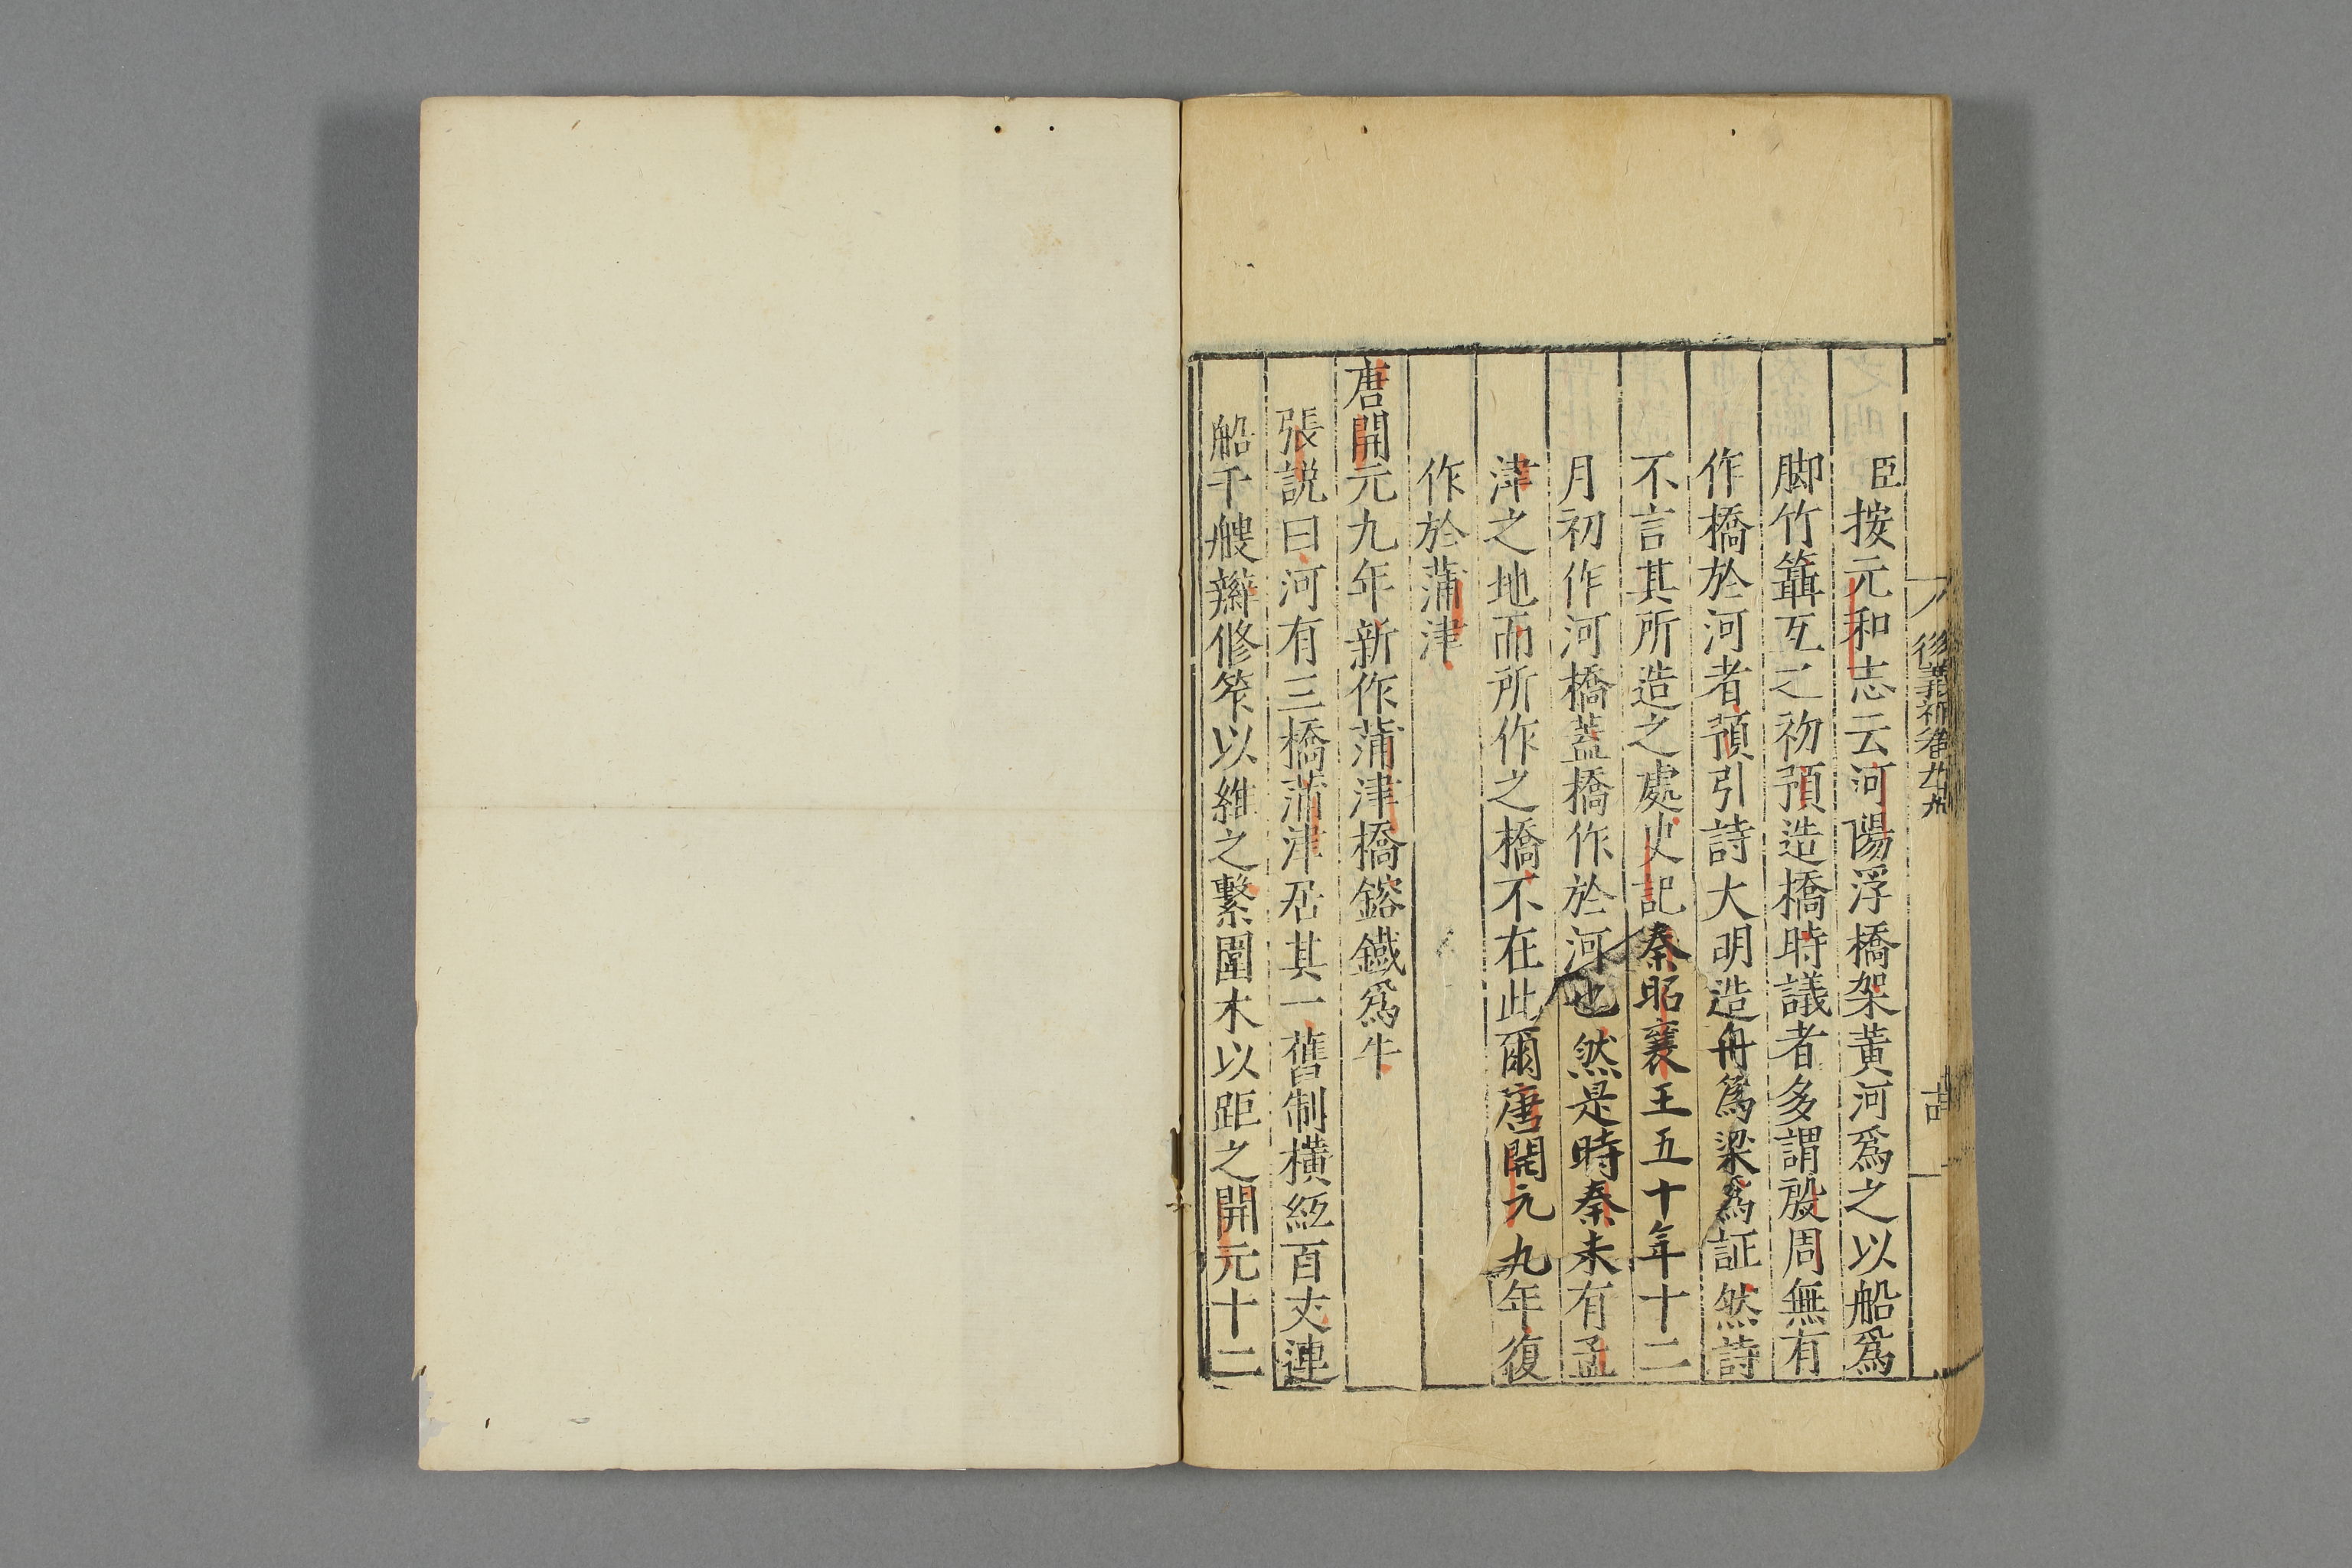 臣按元和志云河陽浮橋架黃河爲之以船爲
脚竹䉶亙之初預造橋時議者多謂殷周無有
作橋於河者預引詩大明造舟爲梁爲証然詩
不言其所造之處史記秦昭襄王五十年十二
月初作河橋蓋橋作於河也然是時秦未有孟
津之地而所作之橋不在此爾唐開元九年復
作於蒲津
唐開元九年新作蒲津橋鎔鐵爲牛
張說曰河有三橋蒲津居其一舊制橫絚百丈連
船千艘辮修筰以維之繫圍木以距之開元十二